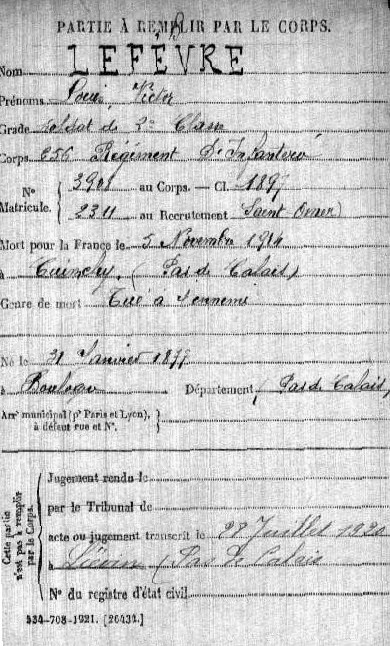 PARTIE À REMPLIR PAR LE CORPS.
Nom LEFÈVRE
Prénoms Louis, Victor
Grade soldat de 2e Classe
Corps 256 Régiment D'Infanterie
N° Matricule. { 3908 au Corps. — Cl. 1897
2311 au Recrutement Saint Omer
Mort pour la France le 5 Novembre 1914
à Cuinchy, (Pas de Calais)
Genre de mort Tué à l'ennemi
Né le 21 Janvier 1877
à Département (Pas de Calais)
Arrt municipal (pr Paris et Lyon), à défaut rue et N°.
Cette partie n'est pas à remplir par le Corps.
Jugement rendu le
par le Tribunal de
acte ou jugement transcrit le 28 Juillet 1920
à Liévin (Pas de Calais
N° du registre d'état civil
534-708-1921. [26434.]